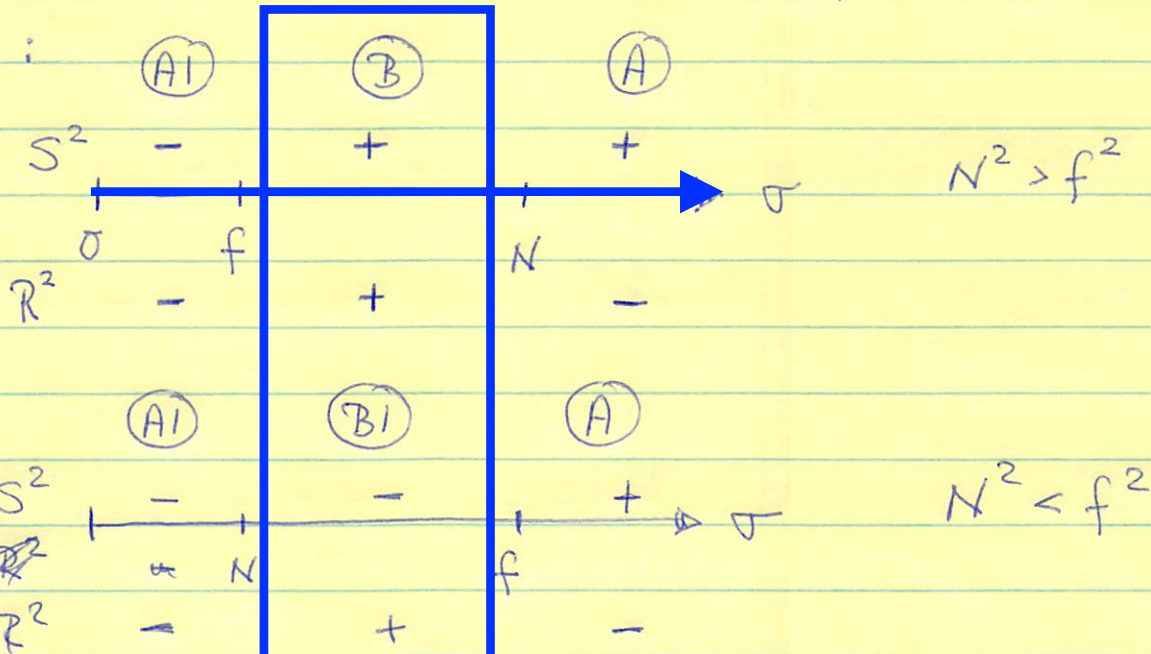 :
A1 B A
S² − + +
σ N² > f²
0 f N
R² − + −
A1 B1 A
S² − − +
σ N² < f²
N f
R² − + −